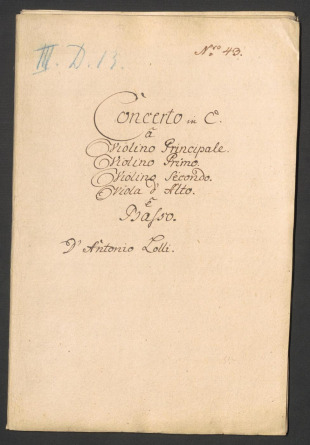 III. D. 15.
Nro 43.
Concerto in C.
â
Violino Principale.
Violino Primo.
Violino Secondo.
Viola d'Alto.
è
Basso.
D'Antonio Lolli.